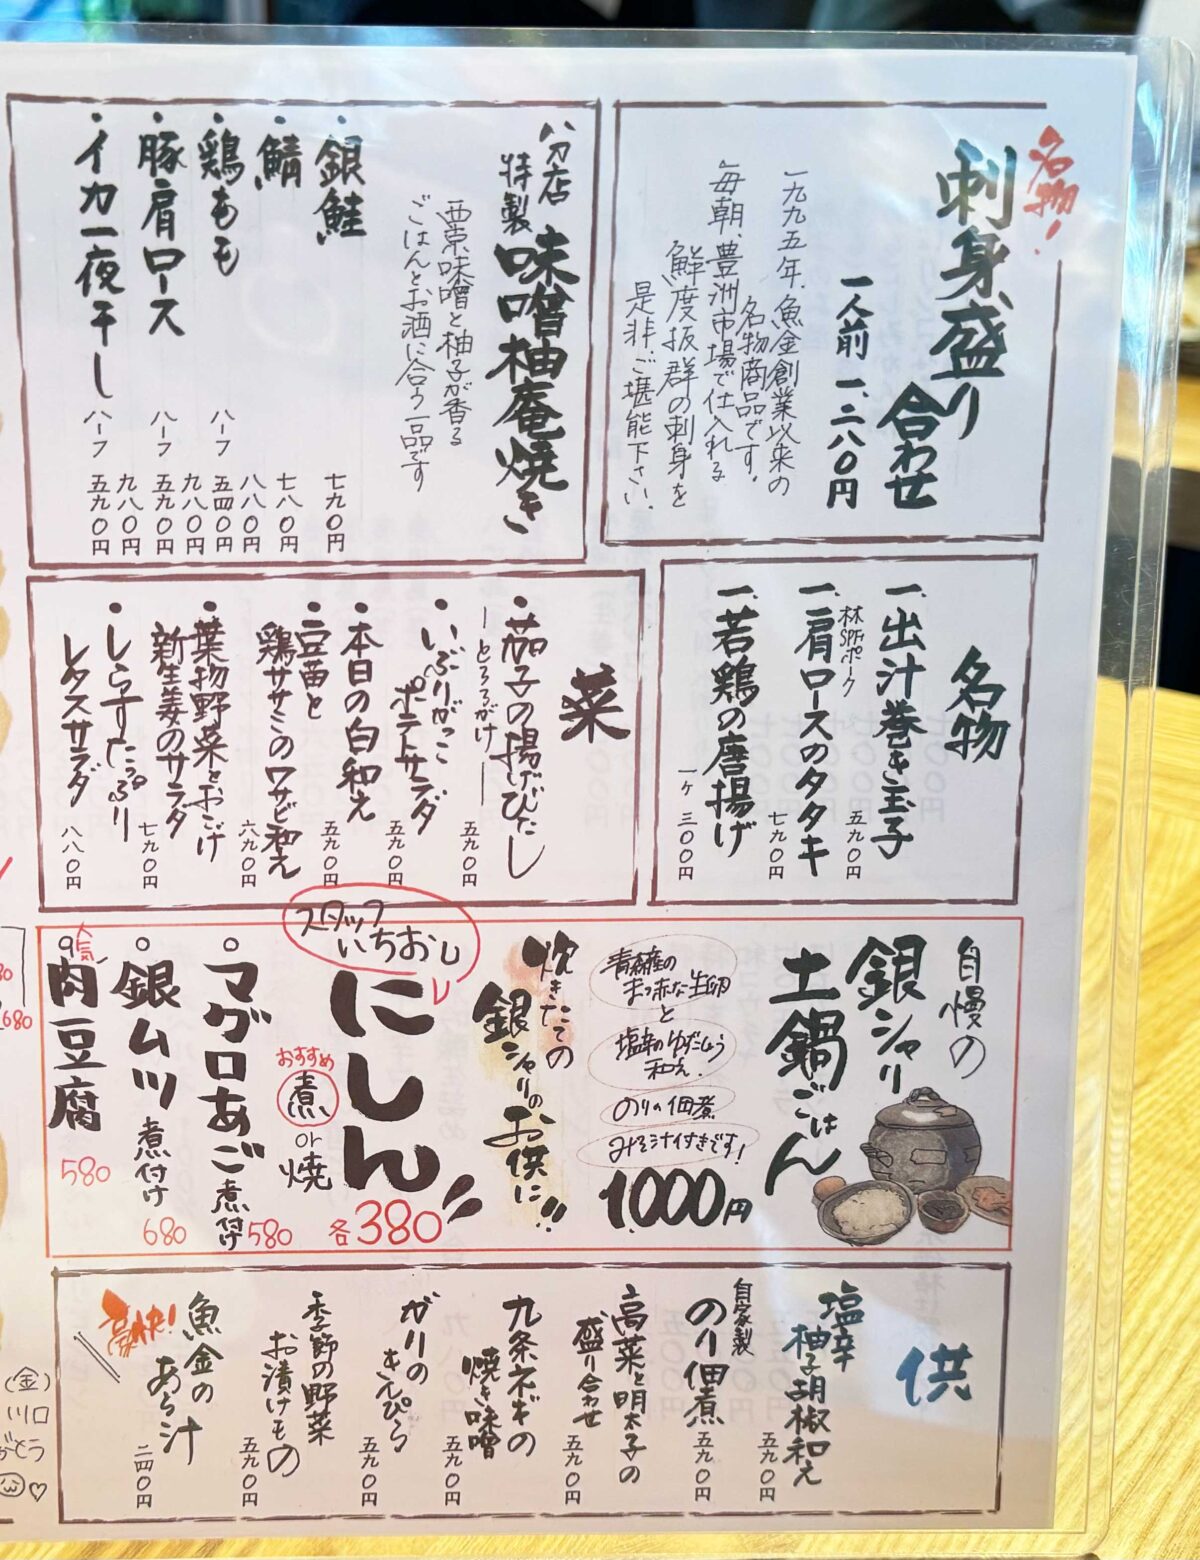 名物!
刺身盛り
合わせ
一人前 一、二八〇円
一九九五年、魚金創業以来の
名物商品です。
毎朝、豊洲市場で仕入れる
鮮度抜群の刺身を
是非、ご堪能下さい。
八分店
特製
味噌柚庵焼き
西京味噌と柚子が香る
ごはんとお酒に合う一品です
・銀鮭
七九〇円
・鯖
七八〇円
・鶏もも
八八〇円
ハーフ 五四〇円
・豚肩ロース
九八〇円
ハーフ 五九〇円
・イカ一夜干し
九八〇円
ハーフ 五九〇円
名物
一、出汁巻き玉子
五九〇円
林SPFポーク
一、肩ロースのタタキ
七九〇円
一、若鶏の唐揚げ
一ケ 三〇〇円
菜
・茄子の揚げびたし
―とろろがけ―
五九〇円
・いぶりがっこ
ポテトサラダ
五九〇円
・本日の白和え
五九〇円
・豆苗と
鶏ササミのワサビ和え
六九〇円
・葉物野菜とおこげ
新生姜のサラダ
七九〇円
・しらすたっぷり
レタスサラダ
八八〇円
自慢の
銀シャリ
土鍋ごはん
青森産の
まっ赤な生卵
と
塩辛のゆずこしょう
和え、
のりの佃煮
みそ汁付きです!
1000円
炊きたての
銀シャリのお供に!!
スタッフ
いちおし
にしん
おすすめ
煮
or
焼
各380
○マグロあご煮付け
580
○銀ムツ煮付け
680
人気!
○肉豆腐
580
供
塩辛
柚子胡椒和え
五九〇円
自家製
のり佃煮
五九〇円
高菜と明太子の
盛り合わせ
五九〇円
九条ネギの
焼き味噌
五九〇円
ガリの
きんぴら
五九〇円
季節の野菜
お漬けもの
五九〇円
魚金の
あら汁
二四〇円
680
(金)
川口